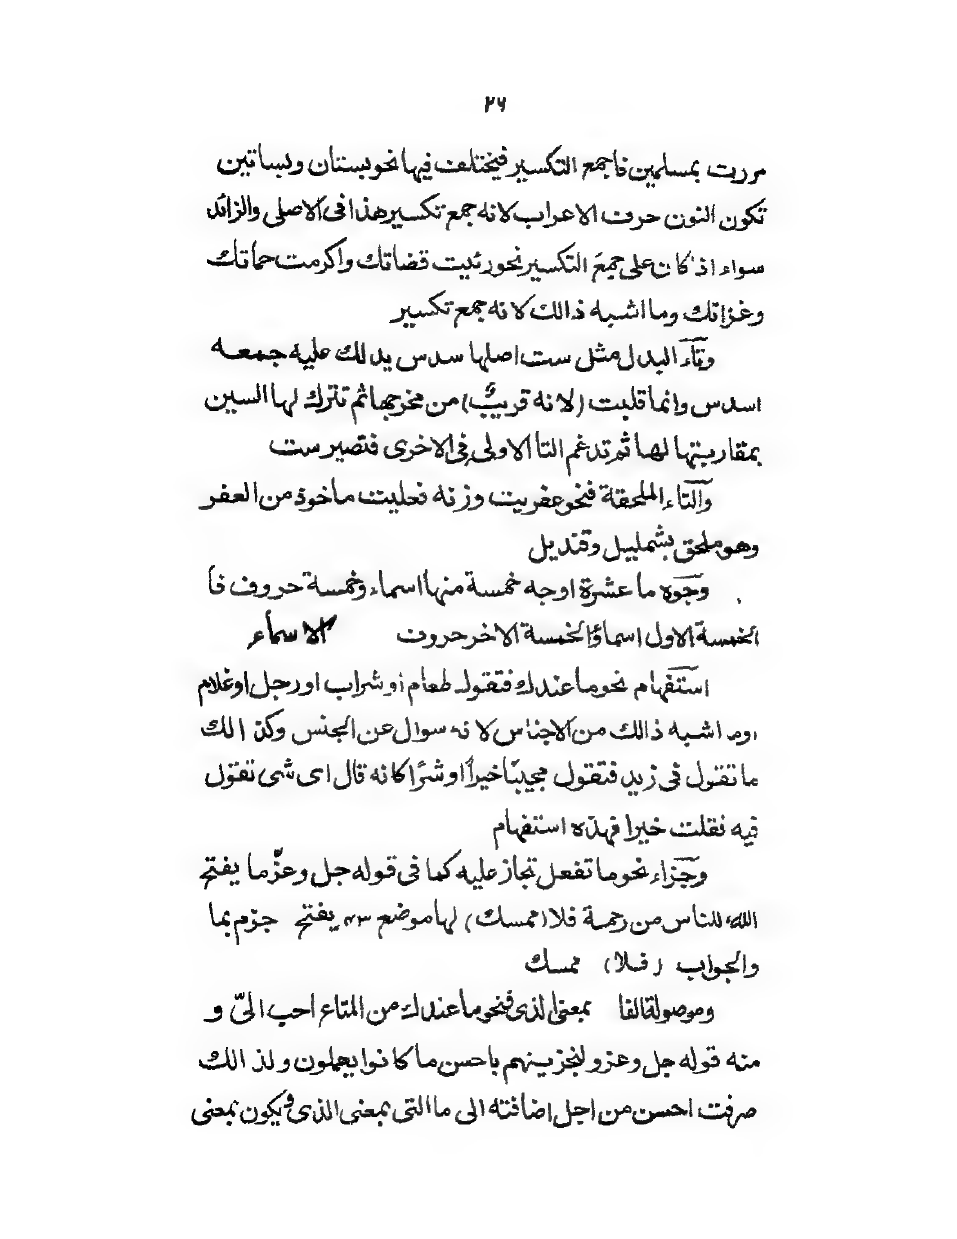 ٢٦
مررت بمسلمين فاجمع التكسير فيختلف فيها نحو بستان وبساتين
تكون النون حرف الاعراب لانه جمع تكسير هذا فى الاصلى والزائد
سواء اذ كان على جمع التكسير نحو رئيت قضاتك واكرمت حماتك
وغزاتك وما اشبه ذالك لانه جمع تكسير
وتآء البدل مثل ست اصلها سدس يدلك عليه جمعه
اسدس وانما قلبت (لانه قريبٌ) من مخرجها ثم تترك لها السين
بمقاربتها لها ثم تدغم التا الاولى فى الاخرى فتصير ست
والتآء الملحقة فنحو عفريت وزنه فعليت ماخوذ من العفر
وهو ملحق بشمليل وقنديل
وجوه ما عشرة اوجه خمسة منها اسماء وخمسة حروف فأ
الخمسة الاول اسماؤ الخمسة الاخر حروف الاسمأء
استفهام نحو ما عندك فتقول طعام او شراب او رجل او غلام
او ما اشبه ذالك من الاجناس لانه سوال عن الجنس وكذالك
ما تقول فى زيد فتقول مجيبًا خيراً او شرًا كانه قال اى شى تقول
فيه نقلت خيرا فهذه استفهام
وجزآء نحو ما تفعل تجاز عليه كما فى قوله جل وعزّ ما يفتح
الله للناس من رحمة فلا (ممسك) لها موضع ٤٣ يفتح جزم بما
والجواب (فلا) ممسك
وموصولة القا بمعنى الذى فنحو ما عندك من المتاع احب الىّ و
منه قوله جل وعز ولنجزينهم باحسن ما كانوا يعملون ولذالك
صرفت احسن من اجل اضافته الى ما التى بمعنى الذى ويكون بمعنى